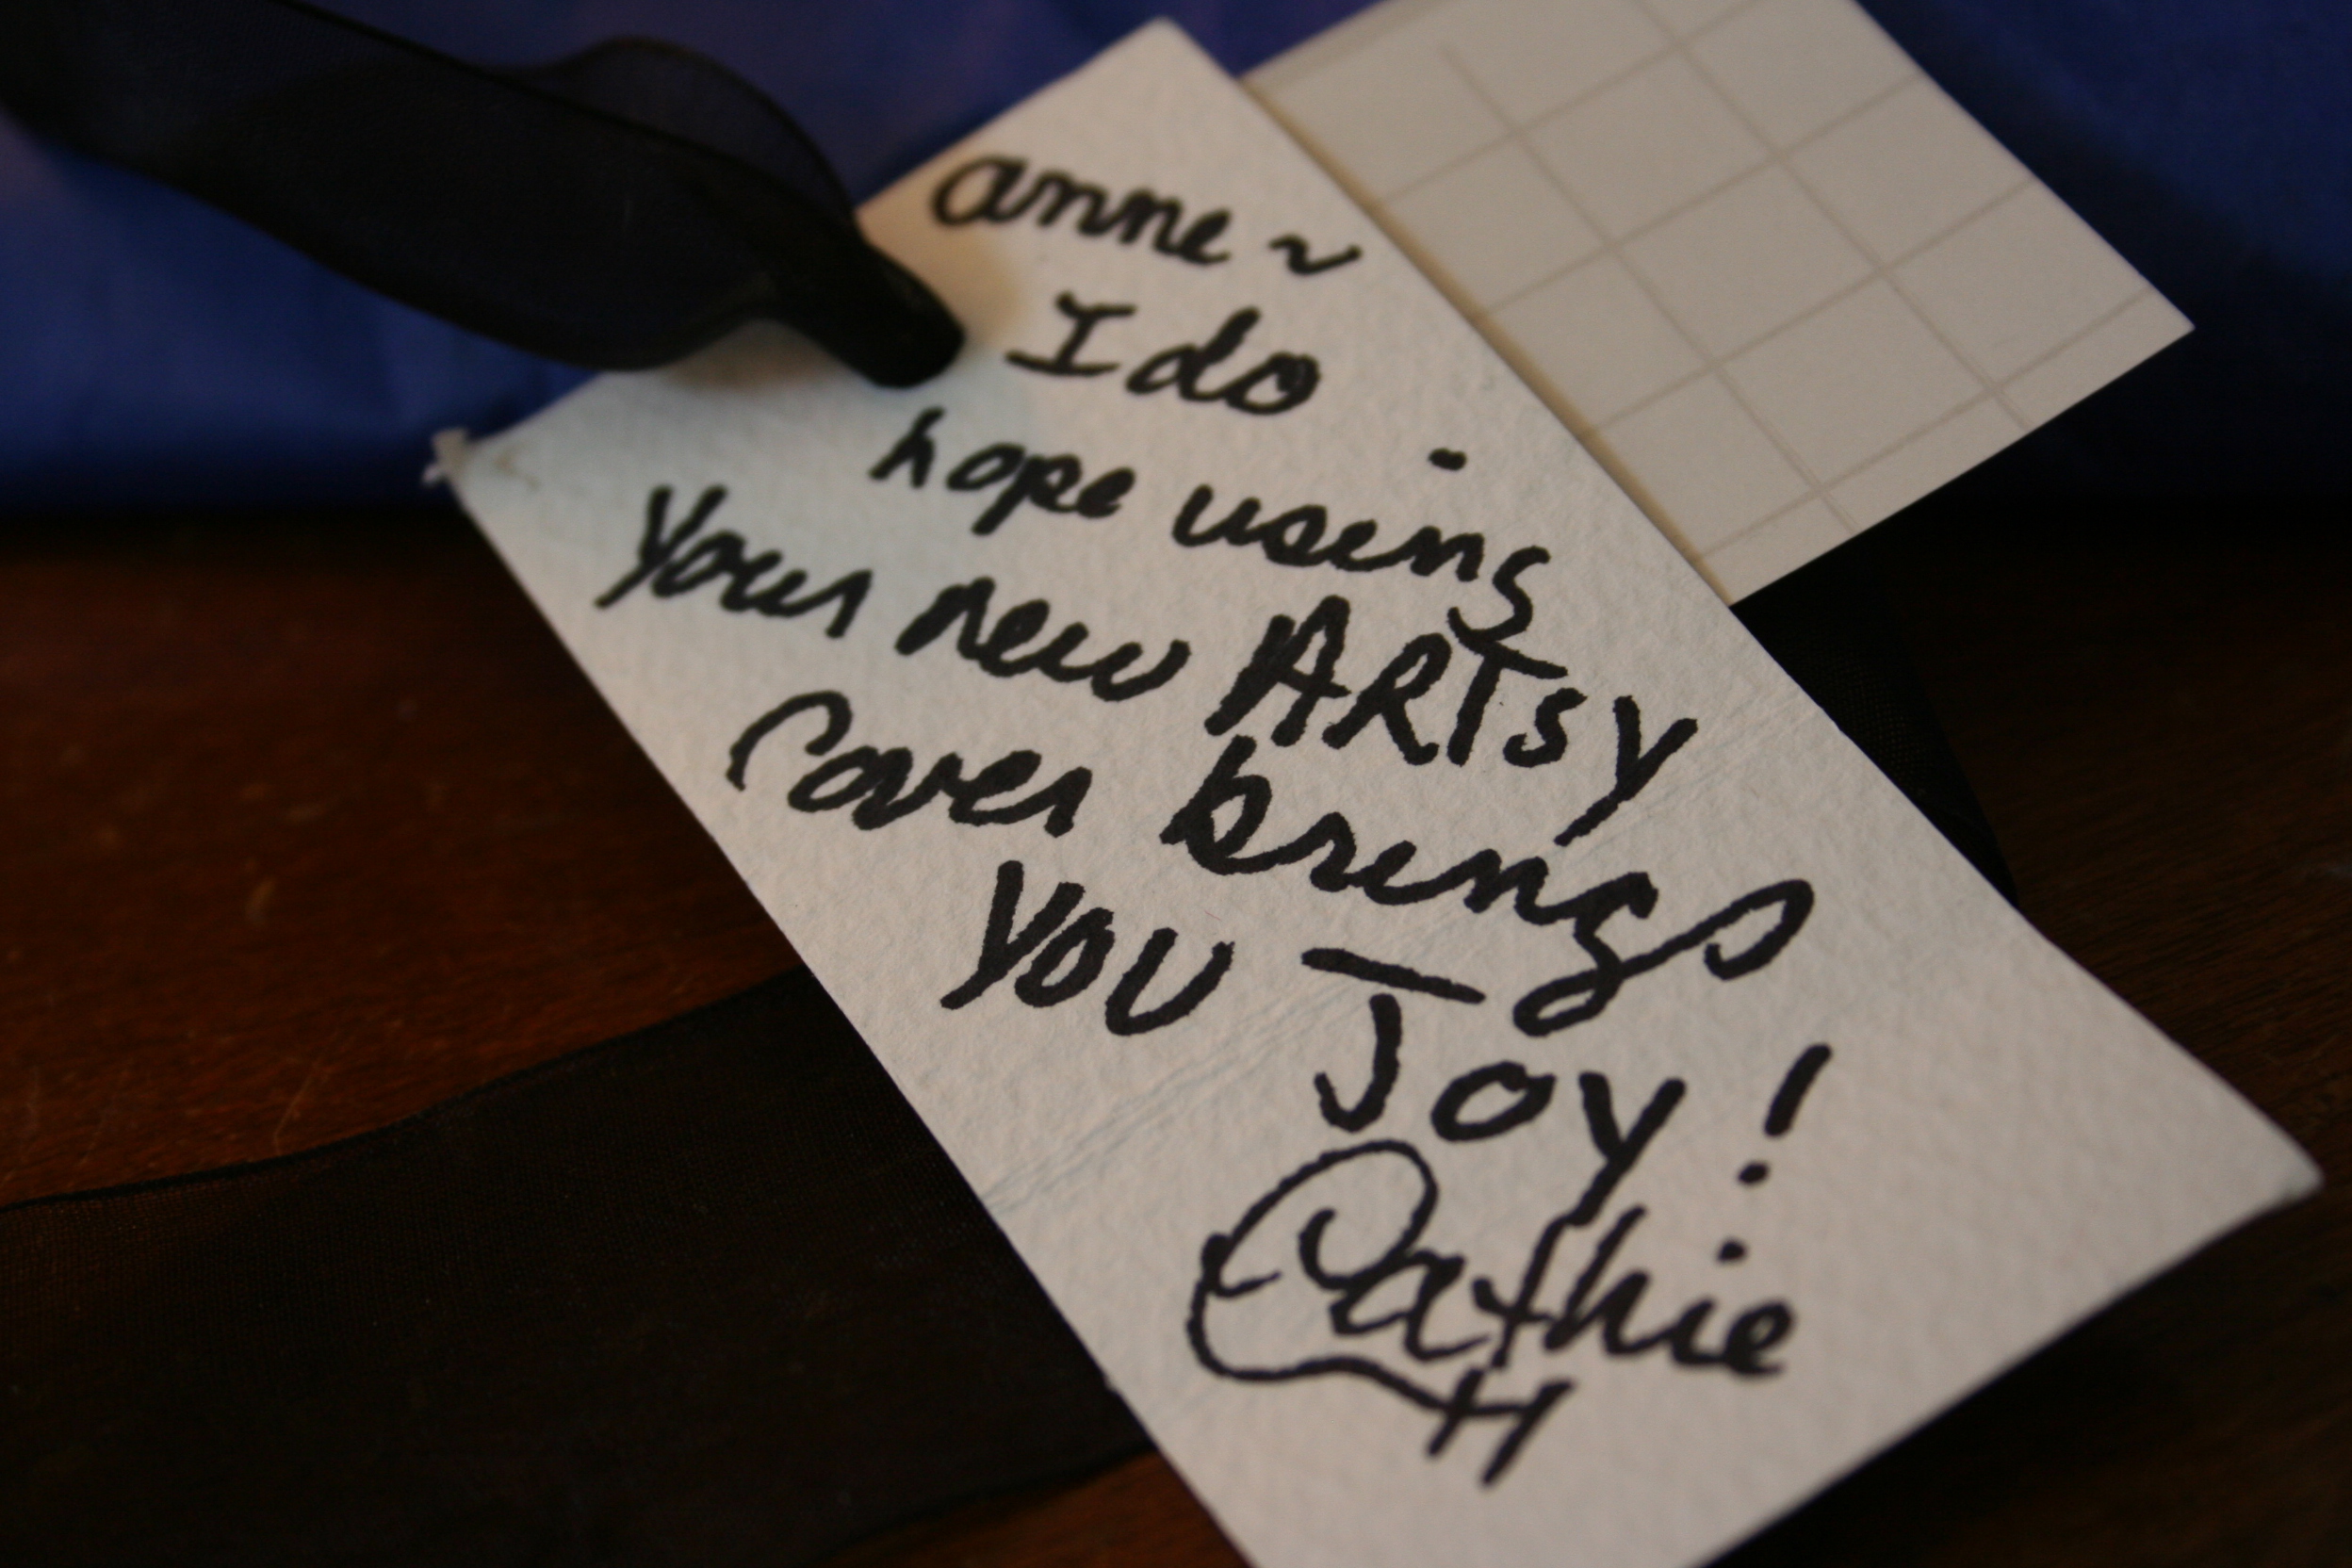 anne ~
I do
hope using
your new ARTsy
Cover brings
you —
Joy!
Cathie
H